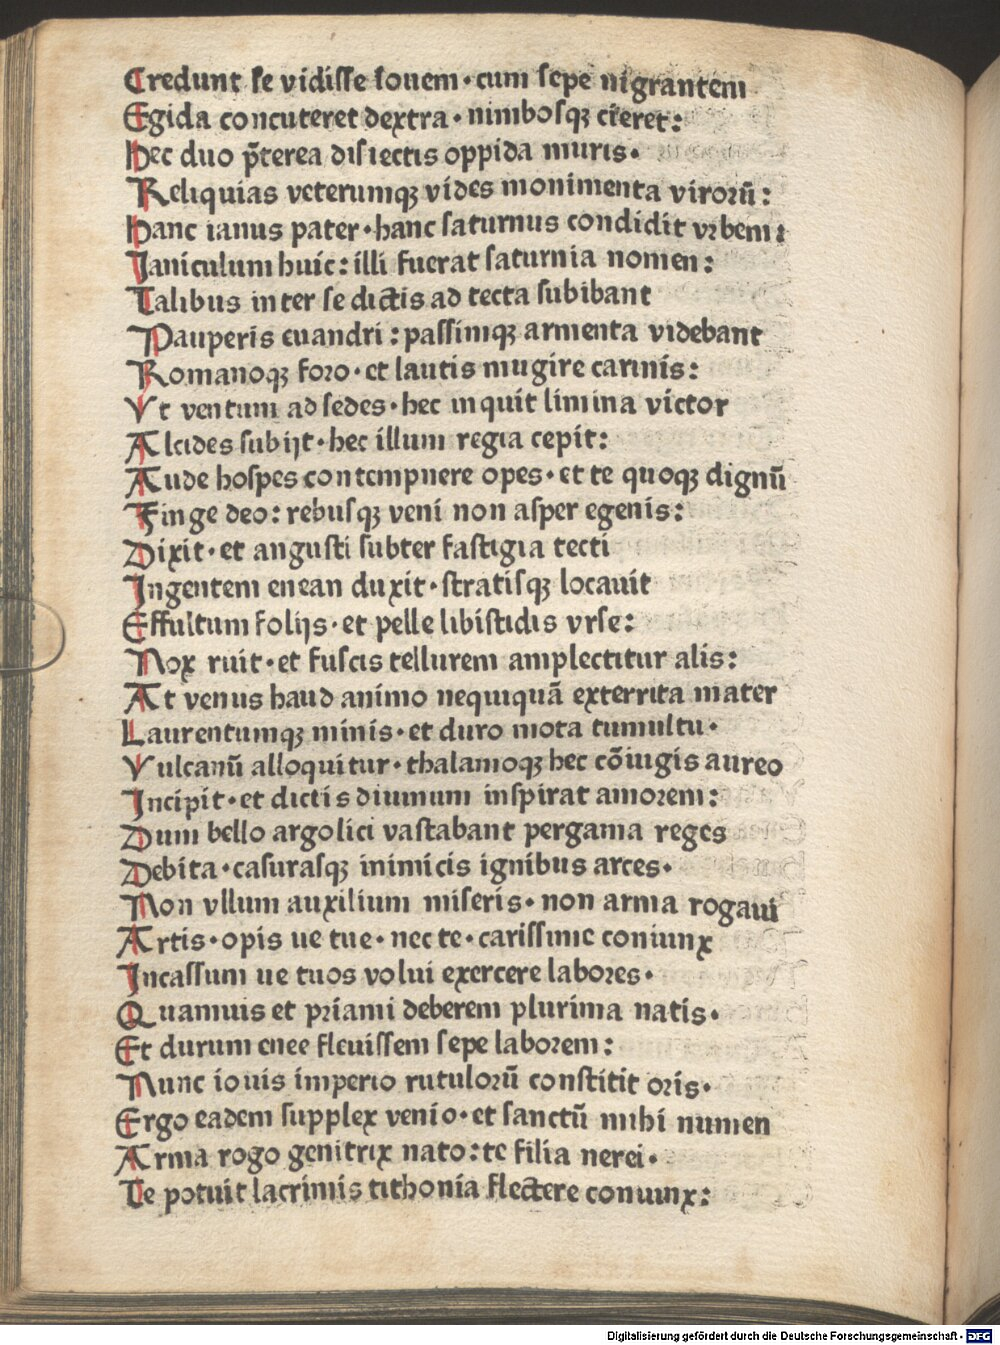 Credunt se vidisse iouem · cum sepe nigrantem
Egida concuteret dextra · nimbosqꝫ cieret:
Hec duo p̄terea disiectis oppida muris ·
Reliquias veterumqꝫ vides monimenta virorū:
Hanc ianus pater · hanc saturnus condidit vrbem:
Janiculum huic: illi fuerat saturnia nomen:
Talibus inter se dictis ad tecta subibant
Pauperis euandri: passimqꝫ armenta videbant
Romanoqꝫ foro · et lautis mugire carinis:
Vt ventum ad sedes · hec inquit limina victor
Alcides subijt · hec illum regia cepit:
Aude hospes contempnere opes · et te quoqꝫ dignū
Finge deo: rebusqꝫ veni non asper egenis:
Dixit · et angusti subter fastigia tecti
Jngentem enean duxit · stratisqꝫ locauit
Effultum folijs · et pelle libistidis vrse:
Nox ruit · et fuscis tellurem amplectitur alis:
At venus haud animo nequiquā exterrita mater
Laurentumqꝫ minis · et duro mota tumultu ·
Vulcanū alloquitur · thalamoqꝫ hec cōiugis aureo
Jncipit · et dictis diuinum inspirat amorem:
Dum bello argolici vastabant pergama reges
Debita · casurasqꝫ inimicis ignibus arces ·
Non vllum auxilium miseris · non arma rogaui
Artis · opis ue tue · nec te · carissime coniunx
Jncassum ue tuos volui exercere labores ·
Quamuis et priami deberem plurima natis ·
Et durum enee fleuissem sepe laborem:
Nunc iouis imperio rutulorū constitit oris ·
Ergo eadem supplex venio · et sanctū mihi numen
Arma rogo genitrix nato: te filia nerei ·
Te potuit lacrimis tithonia flectere coniunx:
Digitalisierung gefördert durch die Deutsche Forschungsgemeinschaft - DFG